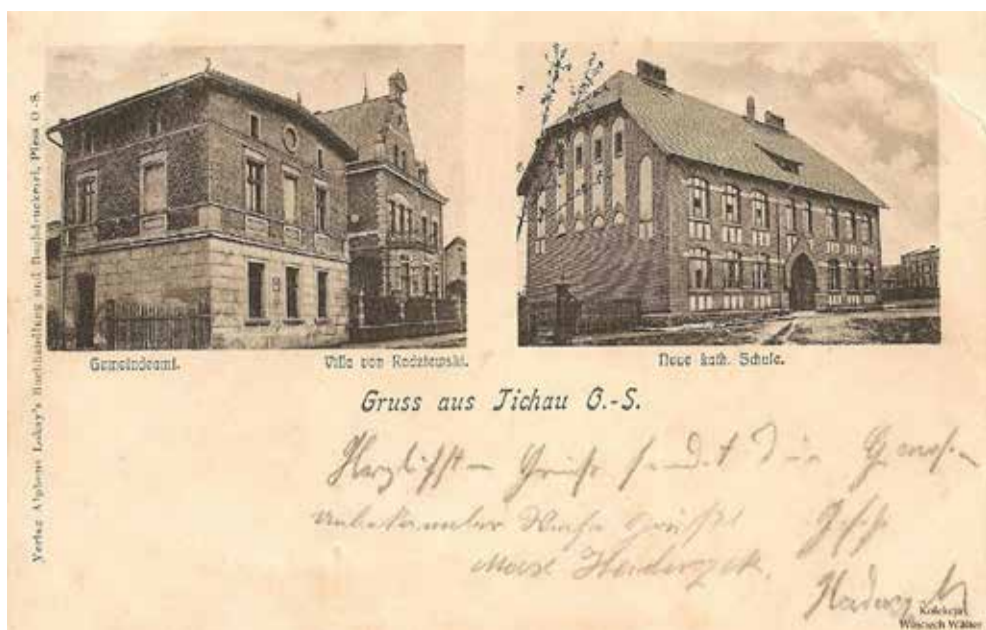 Verlag Alphons Lokay's Buchhandlung und Buchdruckerei, Pless O.-S.
Gemeindeamt.
Villa von Radziewski.
Neue kath. Schule.
Gruss aus Tichau O.-S.
Herzlichsten Gruß sendet Dir
unbekannter Weise
Max
Kolekcja
Wojciech Wālter